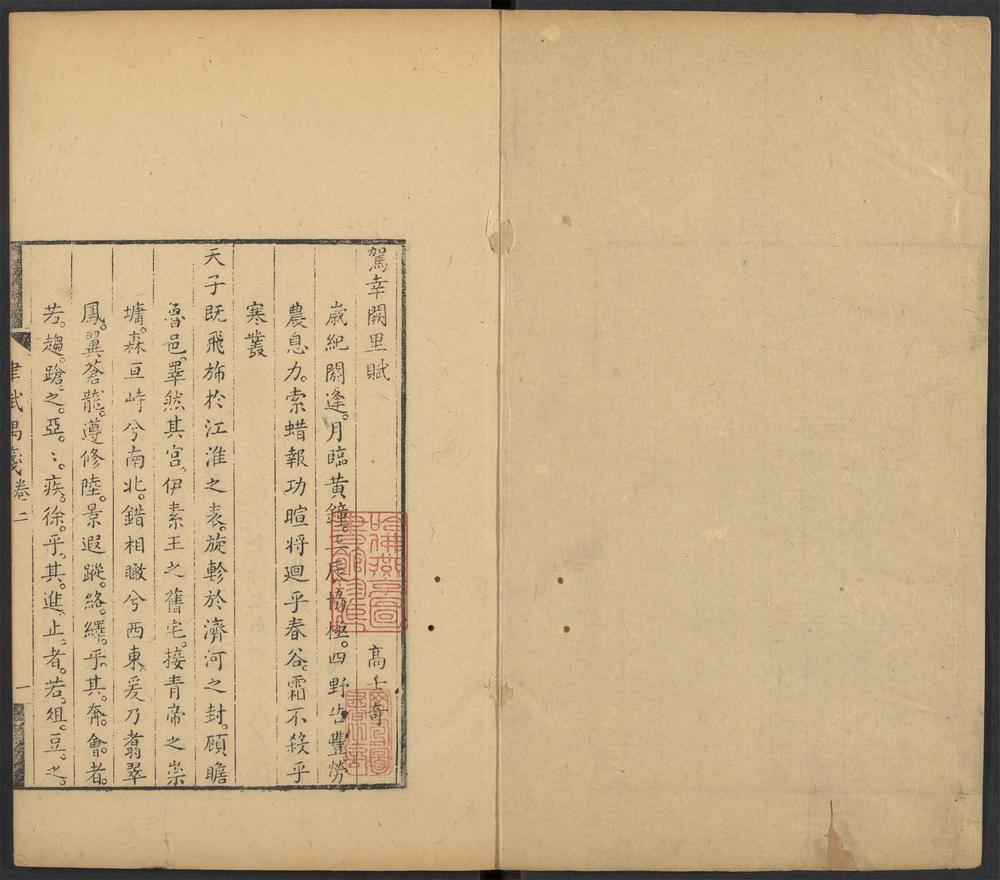 駕幸闕里賦
高士奇
歲紀閼逢。月臨黃鐘。三辰協極。四野占豐勞
農息力。索蜡報功暄將迴乎春谷。霜不殺乎
寒叢
天子既飛斾於江淮之表。旋軫於濟河之封。顧瞻
魯邑。睪然其宮。伊素王之舊宅。接青帝之崇
墉。森亘峙兮南北。錯相瞰兮西東。爰乃翥翠
鳳。翼蒼龍。遵修陸。景遐蹤。絡。繹。乎。其。奔。會。者。
若。趨。蹌。之。亞。〻。疾。徐。乎。其。進。止。者。若。俎。豆。之。
律賦禺箋卷二
一